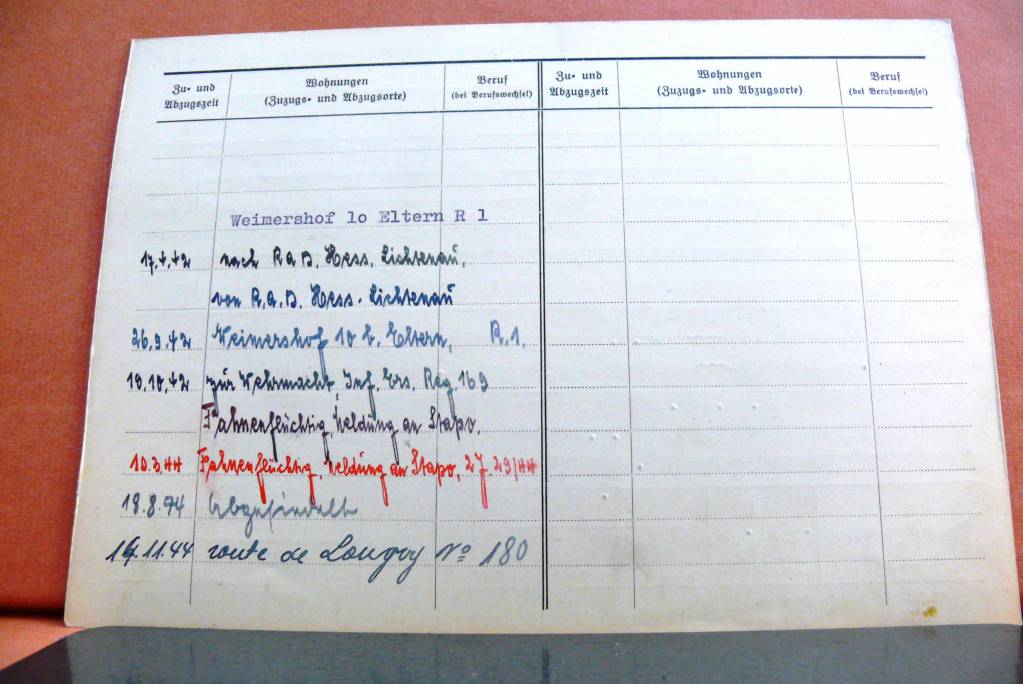 Zu- und Abzugszeit
Wohnungen (Zuzugs- und Abzugsorte)
Beruf (bei Berufswechsel)
Zu- und Abzugszeit
Wohnungen (Zuzugs- und Abzugsorte)
Beruf (bei Berufswechsel)
Weimershof 1o Eltern R 1
17.4.42 nach R.A.D. Hess. Lichtenau.
von R.A.D. Hess. Lichtenau
26.9.42 Weimershof 10 b. Eltern, R.1.
19.10.42 zur Wehrmacht Inf. Ers. Reg. 169
Fahnenflüchtig, Meldung an Stapo.
10.3.44 Fahnenflüchtig, Meldung an Stapo, 27.29/44
18.8.44
.11.44 route de Longwy Nº 180